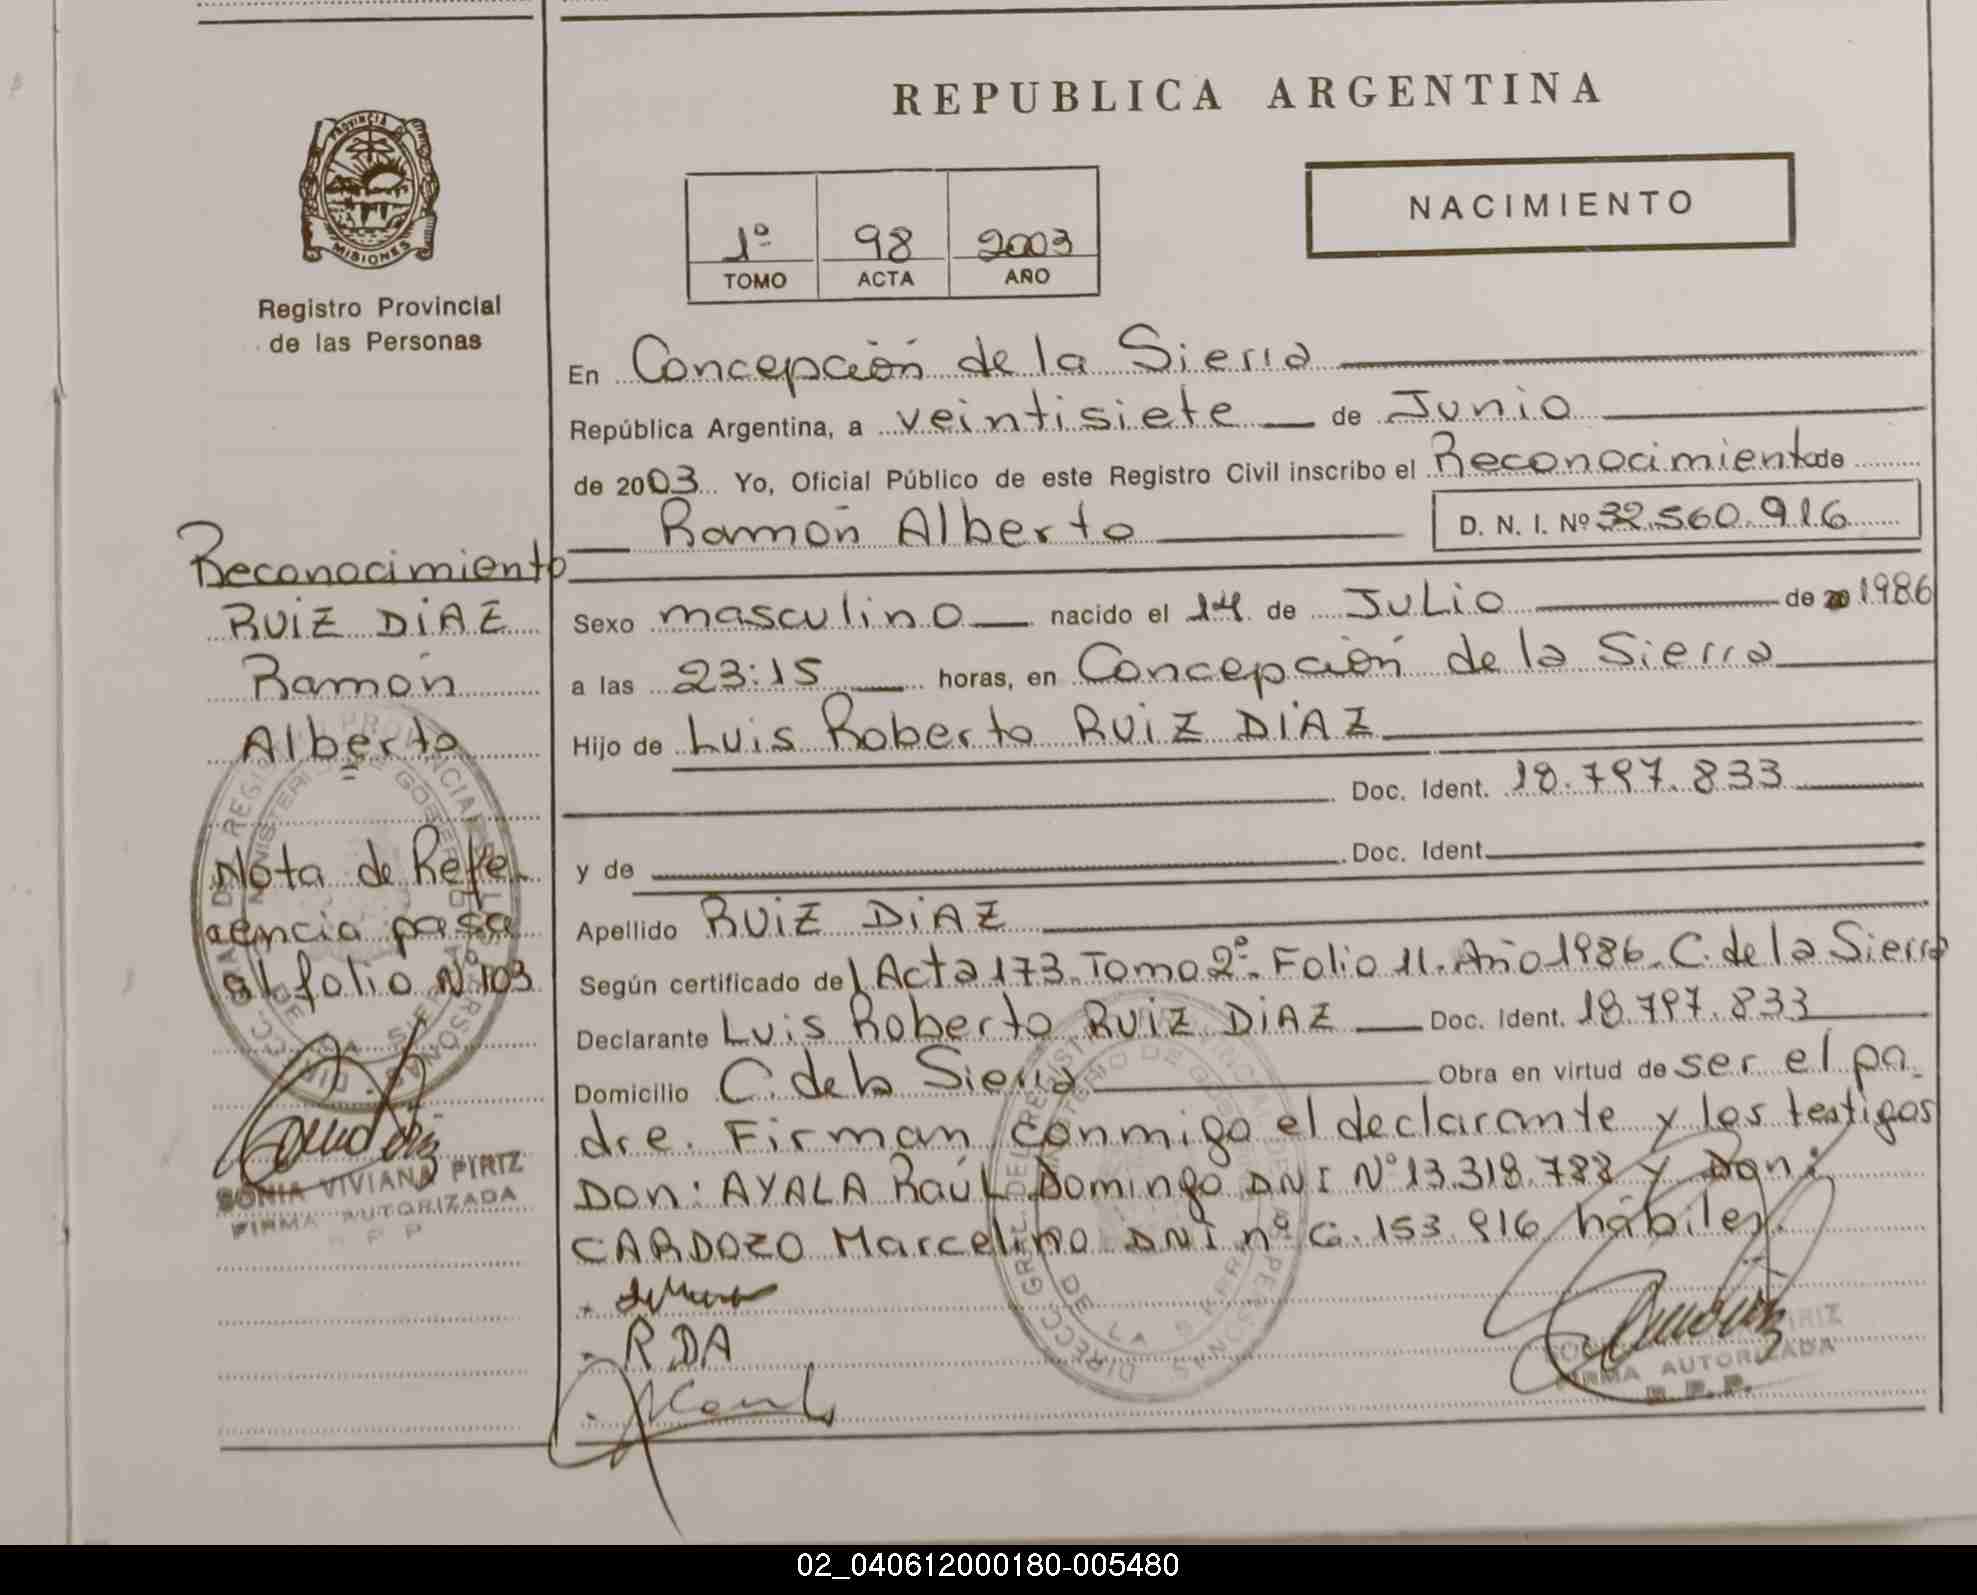 REPUBLICA ARGENTINA
PROVINCIA DE
MISIONES
Registro Provincial
de las Personas
NACIMIENTO
1º 98 2003
TOMO ACTA AÑO
En Concepción de la Sierra
República Argentina, a veintisiete de Junio
de 2003 Yo, Oficial Público de este Registro Civil inscribo el Reconocimiento de
Ramón Alberto D. N. I. Nº 32.560.916
Sexo masculino nacido el 14 de JuLio de 1986
a las 23:15 horas, en Concepción de la Sierra
Hijo de Luis Roberto RUiZ DíAZ
Doc. Ident. 18.797.833
y de Doc. Ident.
Apellido RUiZ DiAZ
Según certificado de Acta 173. Tomo 2º. Folio 11. Año 1986. C. de la Sierra
Declarante Luis Roberto RUiZ DiAZ Doc. Ident. 18.797.833
Domicilio C. de la Sierra Obra en virtud de ser el pa-
dre. Firman conmigo el declarante y los testigos
Don: AYALA Raúl Domingo DNI Nº 13.318.788 y Don:
CARDOZO Marcelino DNI nº 6.153.916 hábiles.
RDA
FIRMA AUTORIZADA
R. P. P.
Reconocimiento
RUiZ DíAZ
Ramón
Alberto
Nota de Refe-
rencia pasa
al folio Nº 103
SONIA VIVIANA PIRIZ
FIRMA AUTORIZADA
R P P
02_040612000180-005480